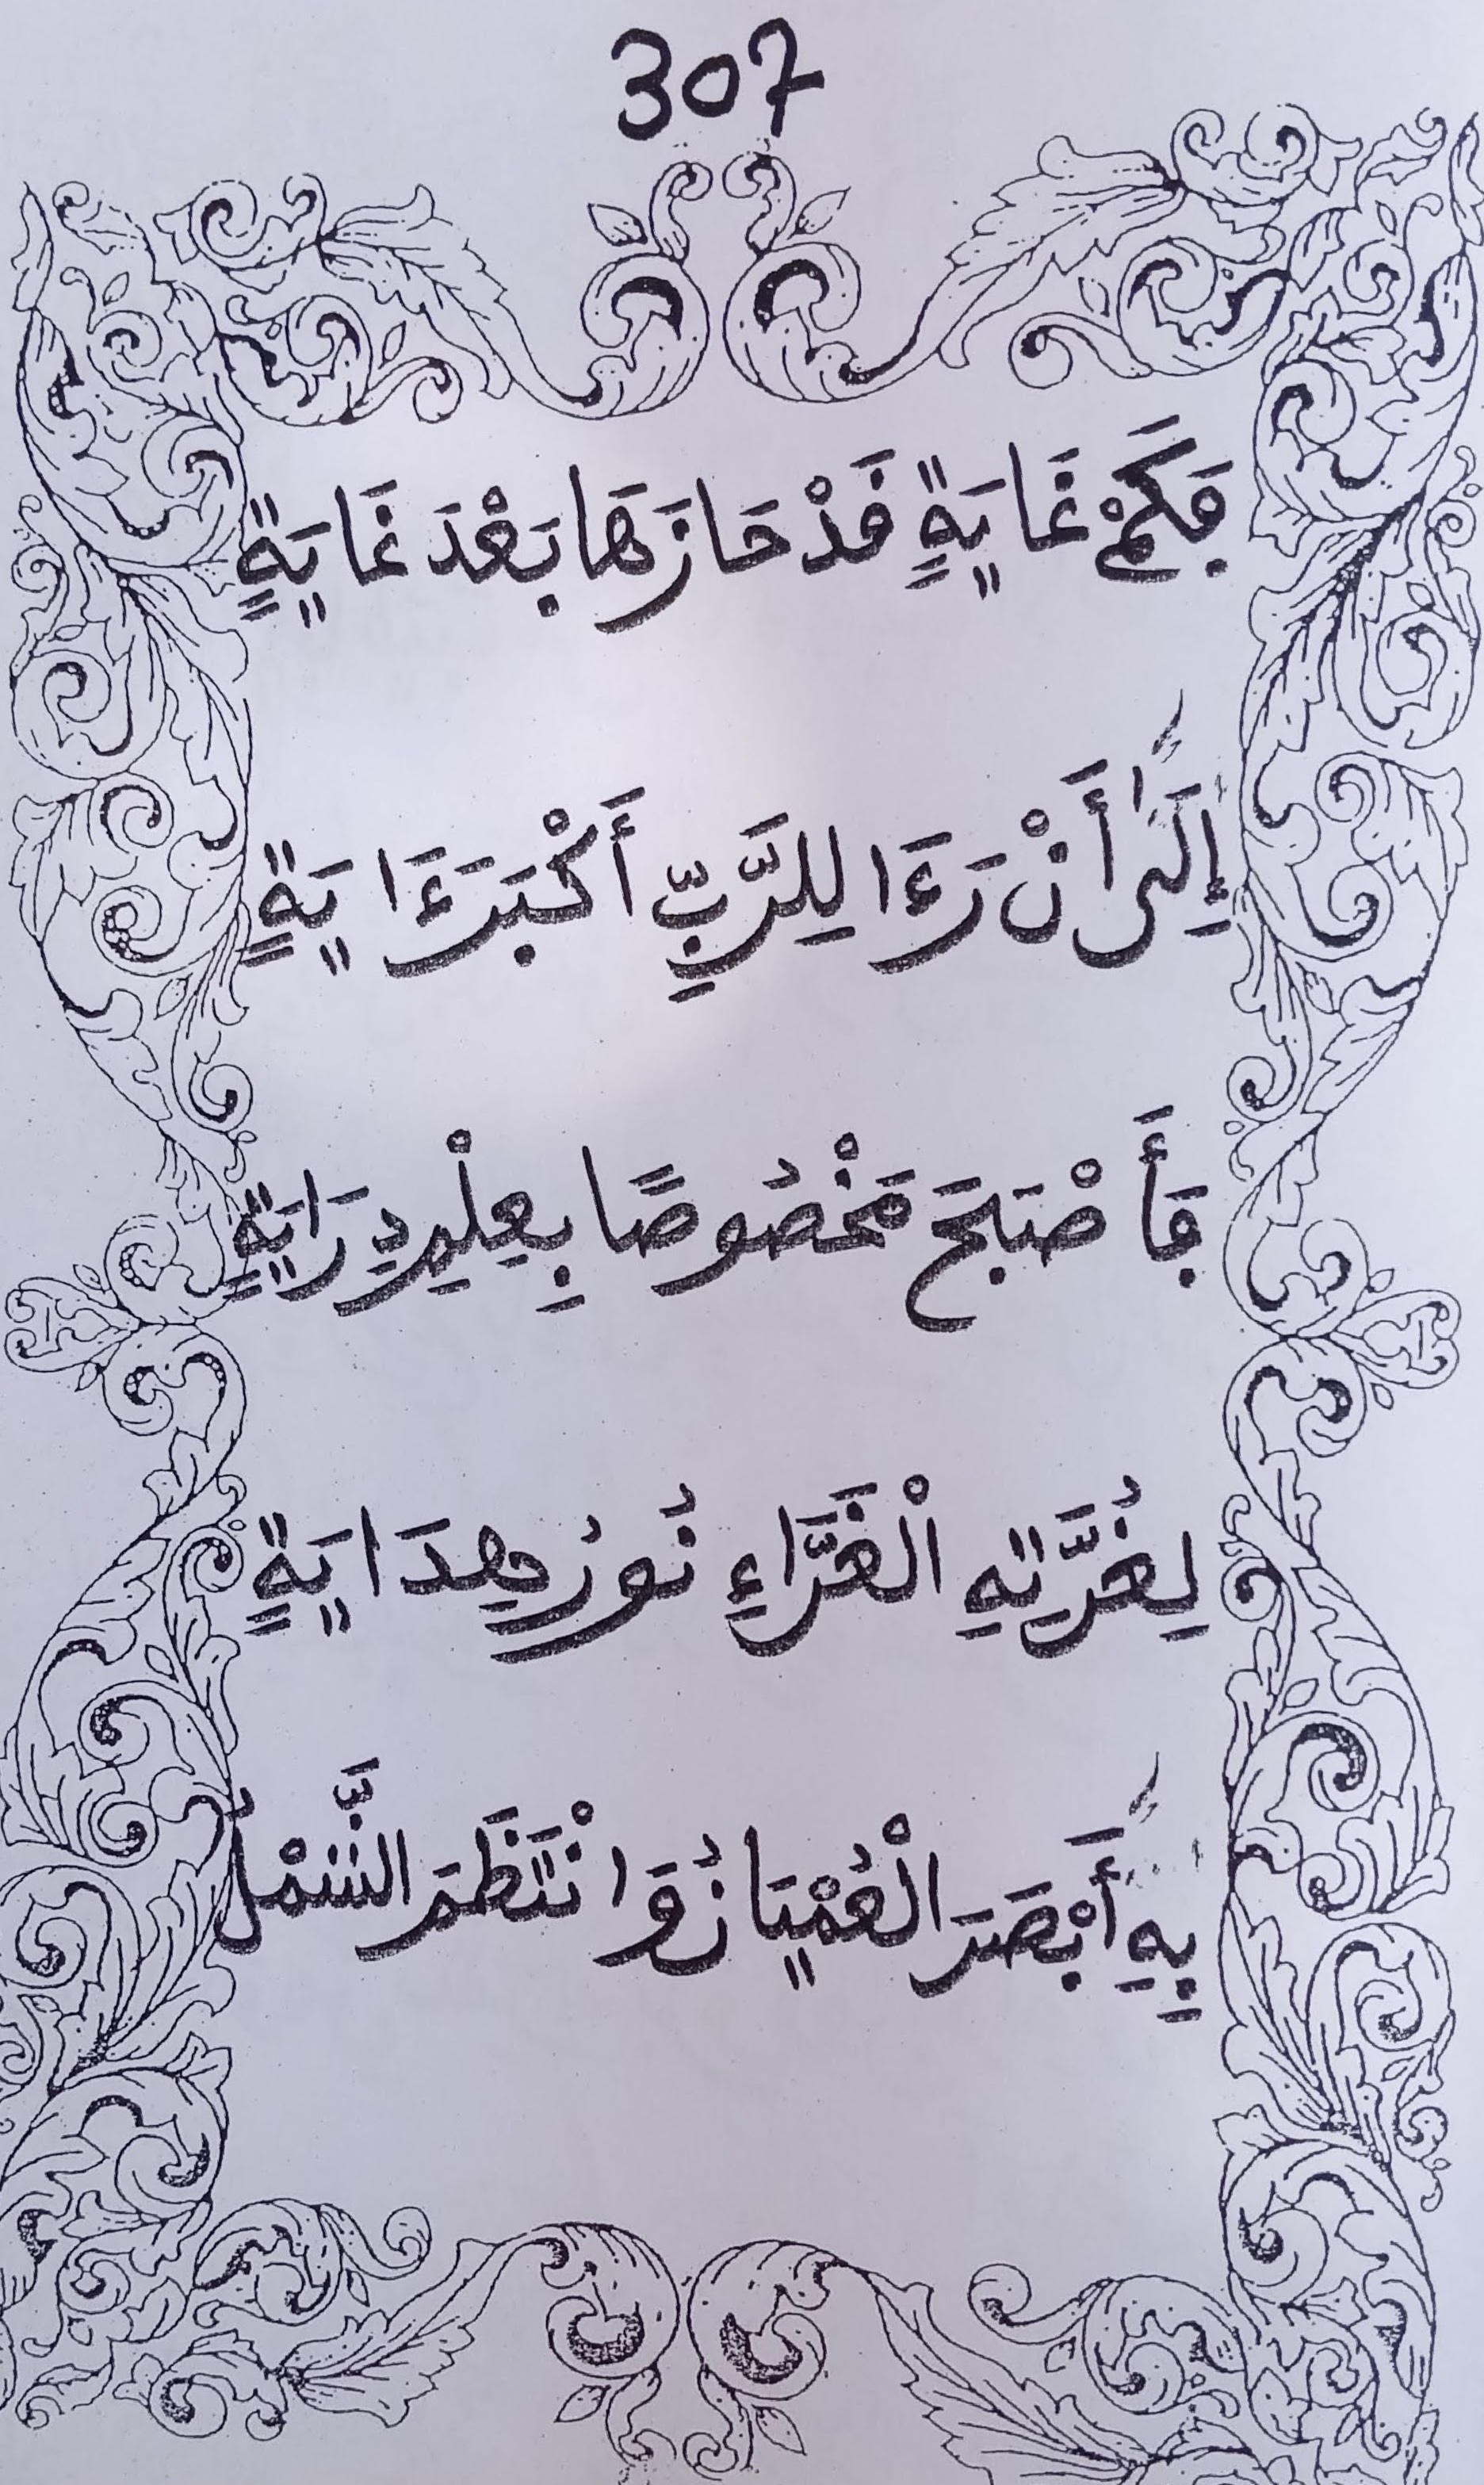 307
فَكَمْ غَايَةٍ قَدْ حَازَهَا بَعْدَ غَايَةٍ
إِلَىٰ أَنْ رَءَا لِلرَّبِّ أَكْبَرَ ءَايَةٍ
فَأَصْبَحَ مَخْصُوصًا بِعِلْمِ دِرَايَةٍ
لِغُرَّتِهِ الْغَرَّاءِ نُورُ هِدَايَةٍ
بِهِ أَبْصَرَ الْعُمْيَانُ وَانْتَظَمَ الشَّمْلُ